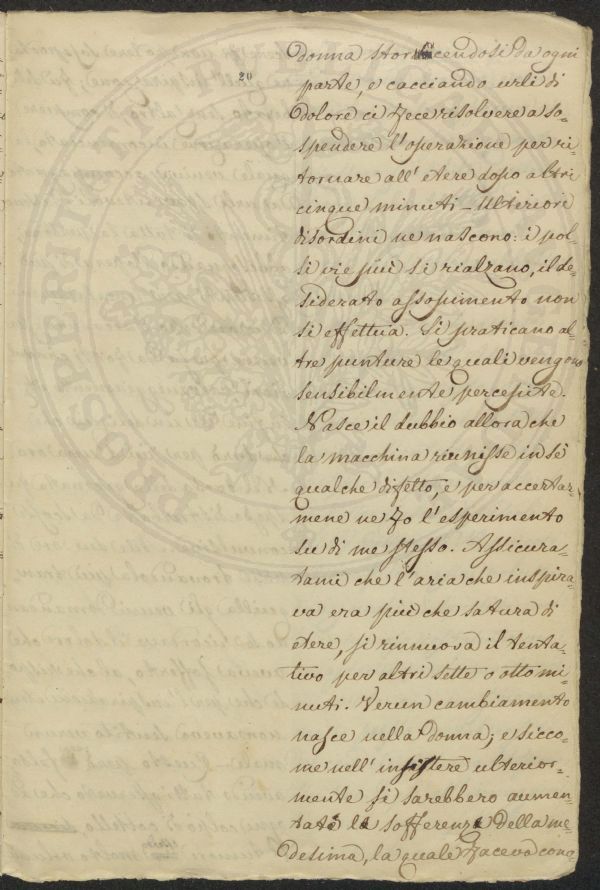 20
donna storcendosi da ogni
parte, e cacciando urli di
dolore ci fece risolvere a so=
spendere l'operazione per ri=
tornare all'etere dopo altri
cinque minuti - Ulteriori
disordini ne nascono: i pol=
si vie più si rialzano, il de=
siderato assopimento non
si effettua. Si praticano al=
tre punture le quali vengono
sensibilmente percepite.
Nasce il dubbio allora che
la macchina riunisse in sè
qualche difetto, e per accertar=
mene ne fo l'esperimento
su di me stesso. Assicura=
tami che l'aria che inspira=
va era più che satura di
etere, si rinnuova il tenta=
tivo per altri sette o otto mi=
nuti. Verun cambiamento
nasce nella donna; e sicco=
me nell'insistere ulterior=
mente si sarebbero aumen=
tate le sofferenze della me=
desima, la quale faceva cono=